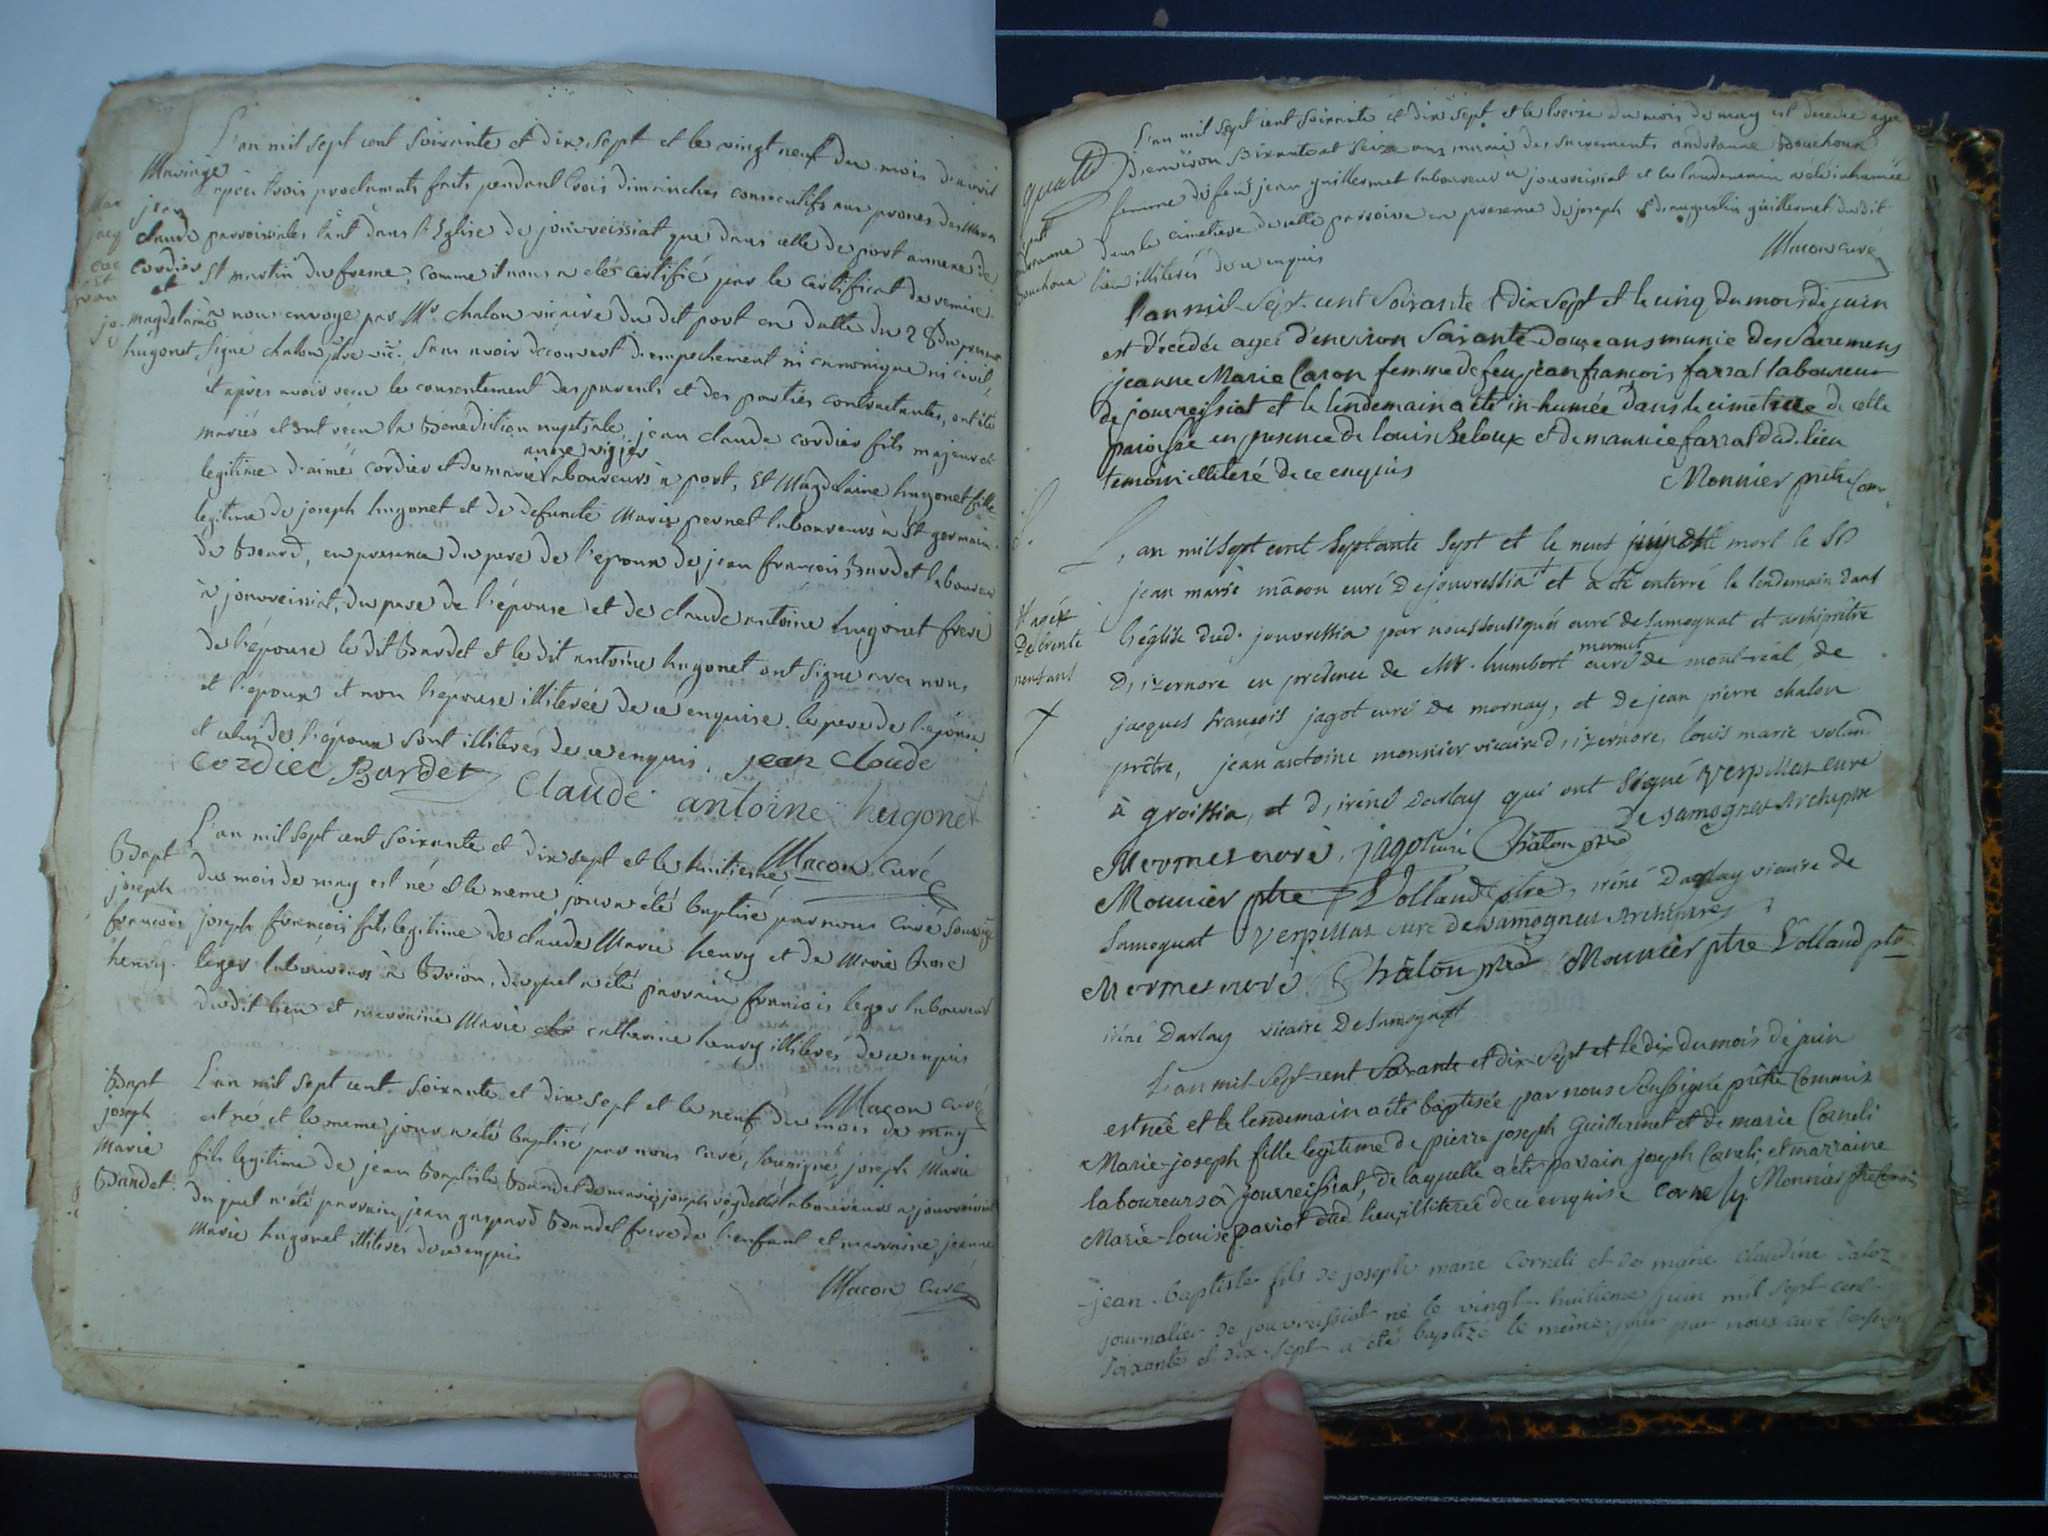 L'an mil sept cent soixante et dix sept et le vingt neuf du mois d'avril
Mariage
jean
claude
cordier
et
magdelaine
hugonet
après trois proclamats faits pendant trois dimanches consecutifs aux prones des Messes
parroissiales tant dans l'Eglise de jouvreissiat que dans celle de port annexe de
St martin du frene, comme il nous a été certifié par le certificat de remise
a nous envoyé par Mr chalon vicaire du dit port en datte du 28 du present
signé chalon ptre vic. sans avoir decouvert d'empechement ni canonique ni civil,
et après avoir reçu le consentement des parents et des parties contractantes, ont été
mariés et ont reçu la Bénédiction nuptiale jean claude cordier fils majeur et
legitime d'aimé cordier et de marie laboureurs à port, Et Magdelaine hugonet fille
legitime de joseph hugonet et de defuncte Marie pernet laboureurs à St germain
de Beard, en presence du pere de l'époux de jean françois Bardet laboureur
à jouvreissiat, du pere de l'épouse et de claude antoine hugonet frere
de l'épouse le dit Bardet et le dit antoine hugonet ont signé avec nous
et l'époux et non l'épouse illiterée de ce enquise. le pere de l'épouse
et celui de l'époux sont illiterés de ce enquis. jean claude
cordier Bardet claude antoine hugonet
Macon curé
Bapt
joseph
françois
henry.
L'an mil sept cent soixante et dix sept et le huitieme
du mois de may est né et le meme jour a été baptisé par nous curé soussigné
joseph françois fils legitime de claude Marie henry et de Marie Rose
leger laboureurs à Brion, duquel a été parrain francois leger laboureur
dudit lieu et marraine Marie catherine henry illiterés de ce enquis
Macon curé
Bapt
joseph
Marie
Bandet.
L'an mil sept cent soixante et dix sept et le neuf du mois de may
est né et le meme jour a été baptisé par nous curé, soussigné joseph Marie
fils legitime de jean Baptiste Bandet laboureurs a jouvreissiat
duquel a été parrain jean gaspard Bandet frere de l'enfant et marraine jeanne
Marie hugonet illiterés de ce enquis
Macon curé
L'an mil sept cent soixante et dix sept et le treize du mois de may est decedée agée
d'environ soixante et seize ans munie des sacrements Bouchoux
femme de feu jean guillermet laboureur a jouvreissiat et le lendemain a été inhumée
dans le cimetiere de cette parroisse en presence de joseph et d'augustin guillermet dudit
lieu illiterés de ce enquis
Macon curé
L'an mil sept cent soixante et dix sept et le cinq du mois de juin
est décédée agée d'environ soixante douze ans munie des sacremens
jeanne Marie Caron femme de feu jean françois farrat laboureur
de jouvreissiat et le lendemain a été in-humée dans le cimetiere de cette
paroisse en presence de louis Beloux et de maurice farrat dud. lieu
temoin illiteré de ce enquis
Monnier prêtre Com.
L'an mil sept cent septante sept et le neuf juin est mort le Sr
jean marie mâcon curé de jouvressia et a été enterré le lendemain dans
l'église dud. jouvressia par nous soussignés curé de samognat et archiprêtre
d'izernore en présence de Mr. humbert mermet curé de mont-réal, de
jacques françois jagot curé de mornay, et de jean pierre chalon
prêtre, jean antoine monnier vicaire d'izernore, louis marie voland
à groissia, et d'iréné Darlay qui ont signé Verpillas curé
de samognat Archiptre
Mermet curé, jagot curé Châlon ptre
Monnier ptre Volland ptre, iréné Darlay vicaire de
Samognat Verpillas curé de samognat Archiptre
Mermet curé Châlon ptre Monnier ptre Volland ptre
iréné Darlay vicaire de samognat
L'an mil sept cent soixante et dix sept et le dix du mois de juin
est née et le lendemain a été baptisée par nous soussigné prêtre Commis
Marie-joseph fille legitime de pierre joseph Guillermet et de marie Corneli
laboureurs à jouvreissiat, de laquelle a été parain joseph Corneli et marraine
Marie-louise paviot dud. lieu illiterée de ce enquise Cornely Monnier ptre Comis
jean-baptiste fils de joseph marie Corneli et de marie claudine
journalier de jouvreissiat né le vingt-huitieme juin mil sept cent
soixante et dix-sept a été baptizé le même jour par nous curé soussigné